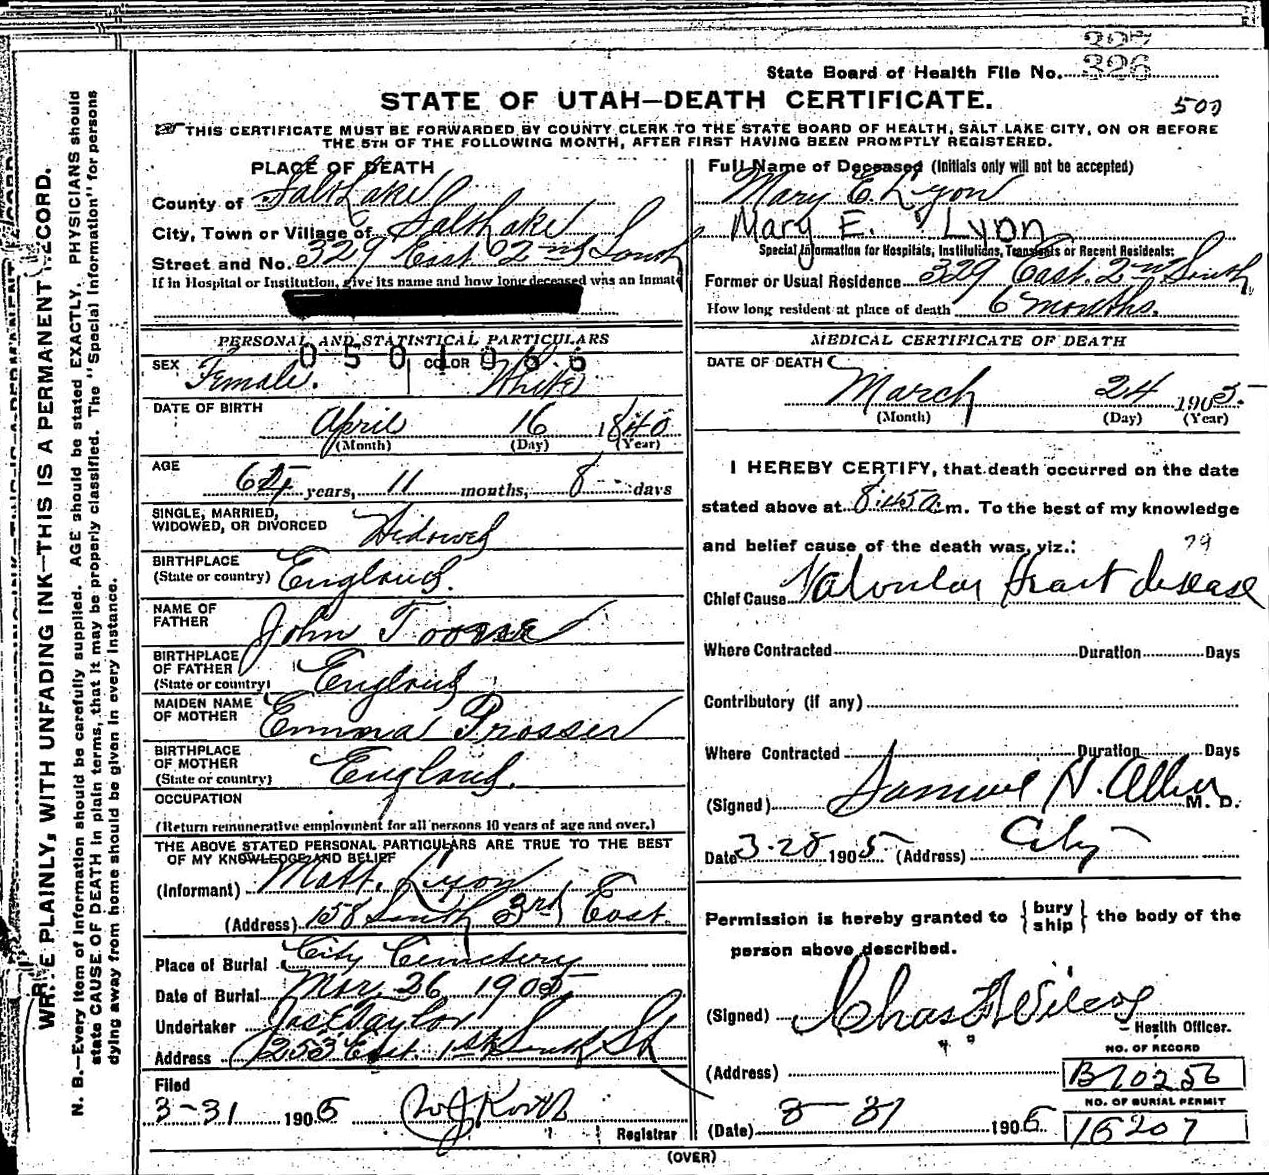 327
326
State Board of Health File No.
STATE OF UTAH—DEATH CERTIFICATE.
500
THIS CERTIFICATE MUST BE FORWARDED BY COUNTY CLERK TO THE STATE BOARD OF HEALTH, SALT LAKE CITY, ON OR BEFORE
THE 5TH OF THE FOLLOWING MONTH, AFTER FIRST HAVING BEEN PROMPTLY REGISTERED.
WRITE PLAINLY, WITH UNFADING INK—THIS IS A PERMANENT RECORD.
N. B.—Every item of information should be carefully supplied. AGE should be stated EXACTLY. PHYSICIANS should
state CAUSE OF DEATH in plain terms, that it may be properly classified. The "Special Information" for persons
dying away from home should be given in every instance.
PLACE OF DEATH
County of Salt Lake
City, Town or Village of Salt Lake
Street and No. 329 East 2nd South
If in Hospital or Institution, give its name and how long deceased was an inmate
PERSONAL AND STATISTICAL PARTICULARS
0501966
SEX Female. COLOR White
DATE OF BIRTH
April 16 1840
(Month) (Day) (Year)
AGE
64 years, 11 months, 8 days
SINGLE, MARRIED,
WIDOWED, OR DIVORCED Widowed
BIRTHPLACE
(State or country) England.
NAME OF
FATHER John Toorse
BIRTHPLACE
OF FATHER
(State or country) England
MAIDEN NAME
OF MOTHER Emma Prosser
BIRTHPLACE
OF MOTHER
(State or country) England.
OCCUPATION
(Return remunerative employment for all persons 10 years of age and over.)
THE ABOVE STATED PERSONAL PARTICULARS ARE TRUE TO THE BEST
OF MY KNOWLEDGE AND BELIEF
(Informant) Matt. Lyon
(Address) 158 South 3rd East.
Place of Burial City Cemetery
Date of Burial Mar. 26 1905
Undertaker Jos E Taylor
Address 253 East 1st South St
Filed
3-31 1905
Registrar
Full Name of Deceased (Initials only will not be accepted)
Mary E. Lyon
Mary E. Lyon
Special Information for Hospitals, Institutions, Transients or Recent Residents:
Former or Usual Residence 329 East. 2nd South
How long resident at place of death 6 months.
MEDICAL CERTIFICATE OF DEATH
DATE OF DEATH
March 24 1905.
(Month) (Day) (Year)
I HEREBY CERTIFY, that death occurred on the date
stated above at 8:45 a.m. To the best of my knowledge
and belief cause of the death was, viz.: 79
Chief Cause Valvular Heart disease
Where Contracted Duration Days
Contributory (if any)
Where Contracted Duration Days
(Signed) Samuel H. Allen M. D.
Date 3-28 1905 (Address) City
Permission is hereby granted to {bury ship} the body of the
person above described.
(Signed) Chas F Wilcox
Health Officer.
NO. OF RECORD
(Address) B10256
NO. OF BURIAL PERMIT
(Date) 3-31 1905 16207
(OVER)